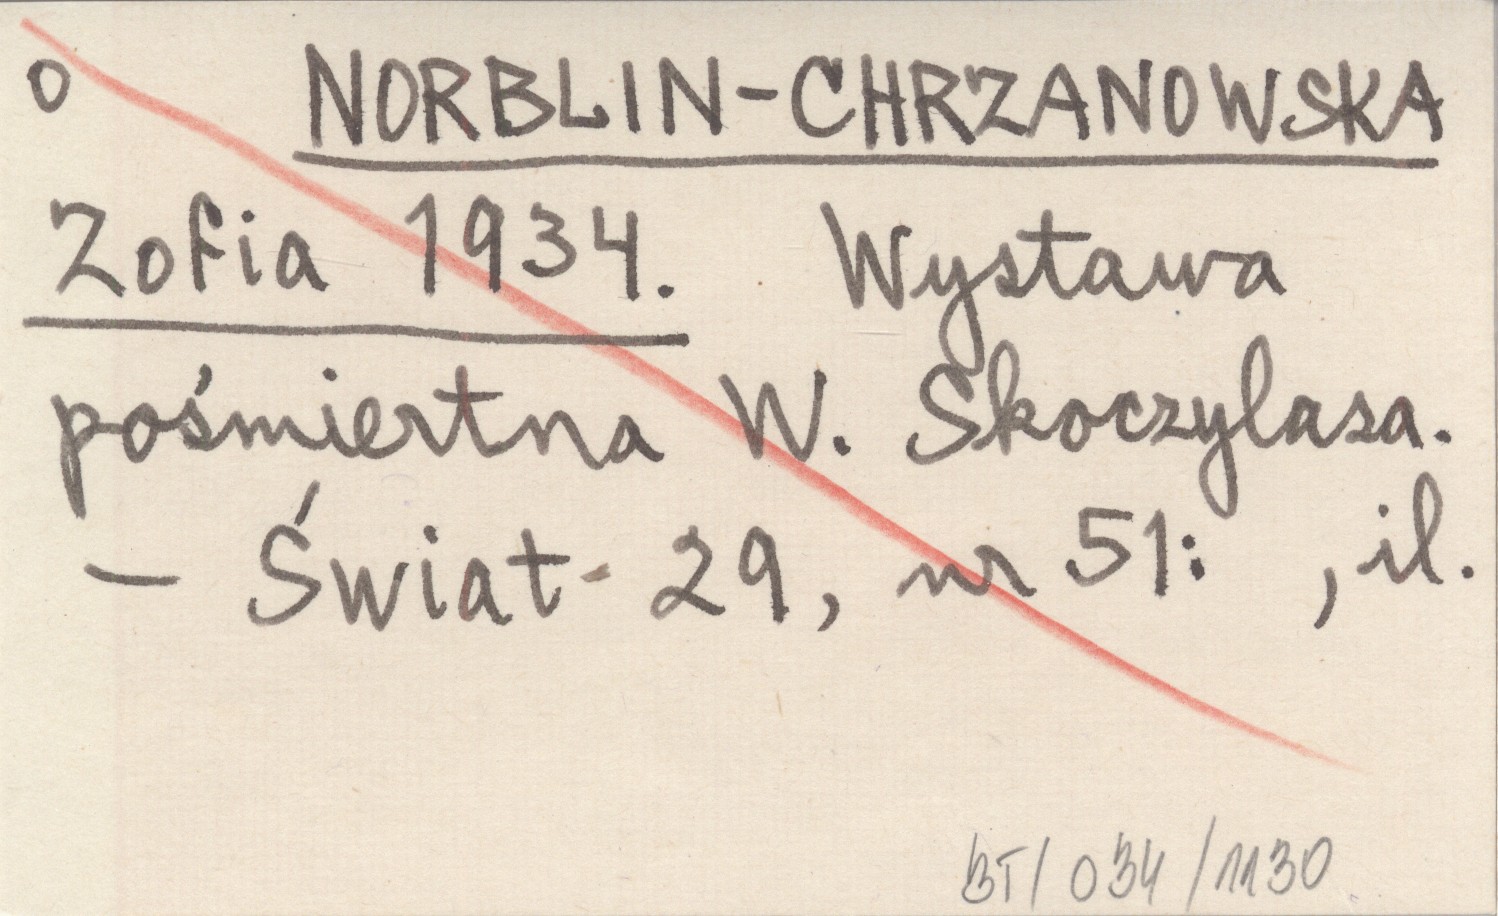 o NORBLIN-CHRZANOWSKA
Zofia 1934. Wystawa
pośmiertna W. Skoczylasa.
– Świat- 29, nr 51: , il.
BT/034/1130